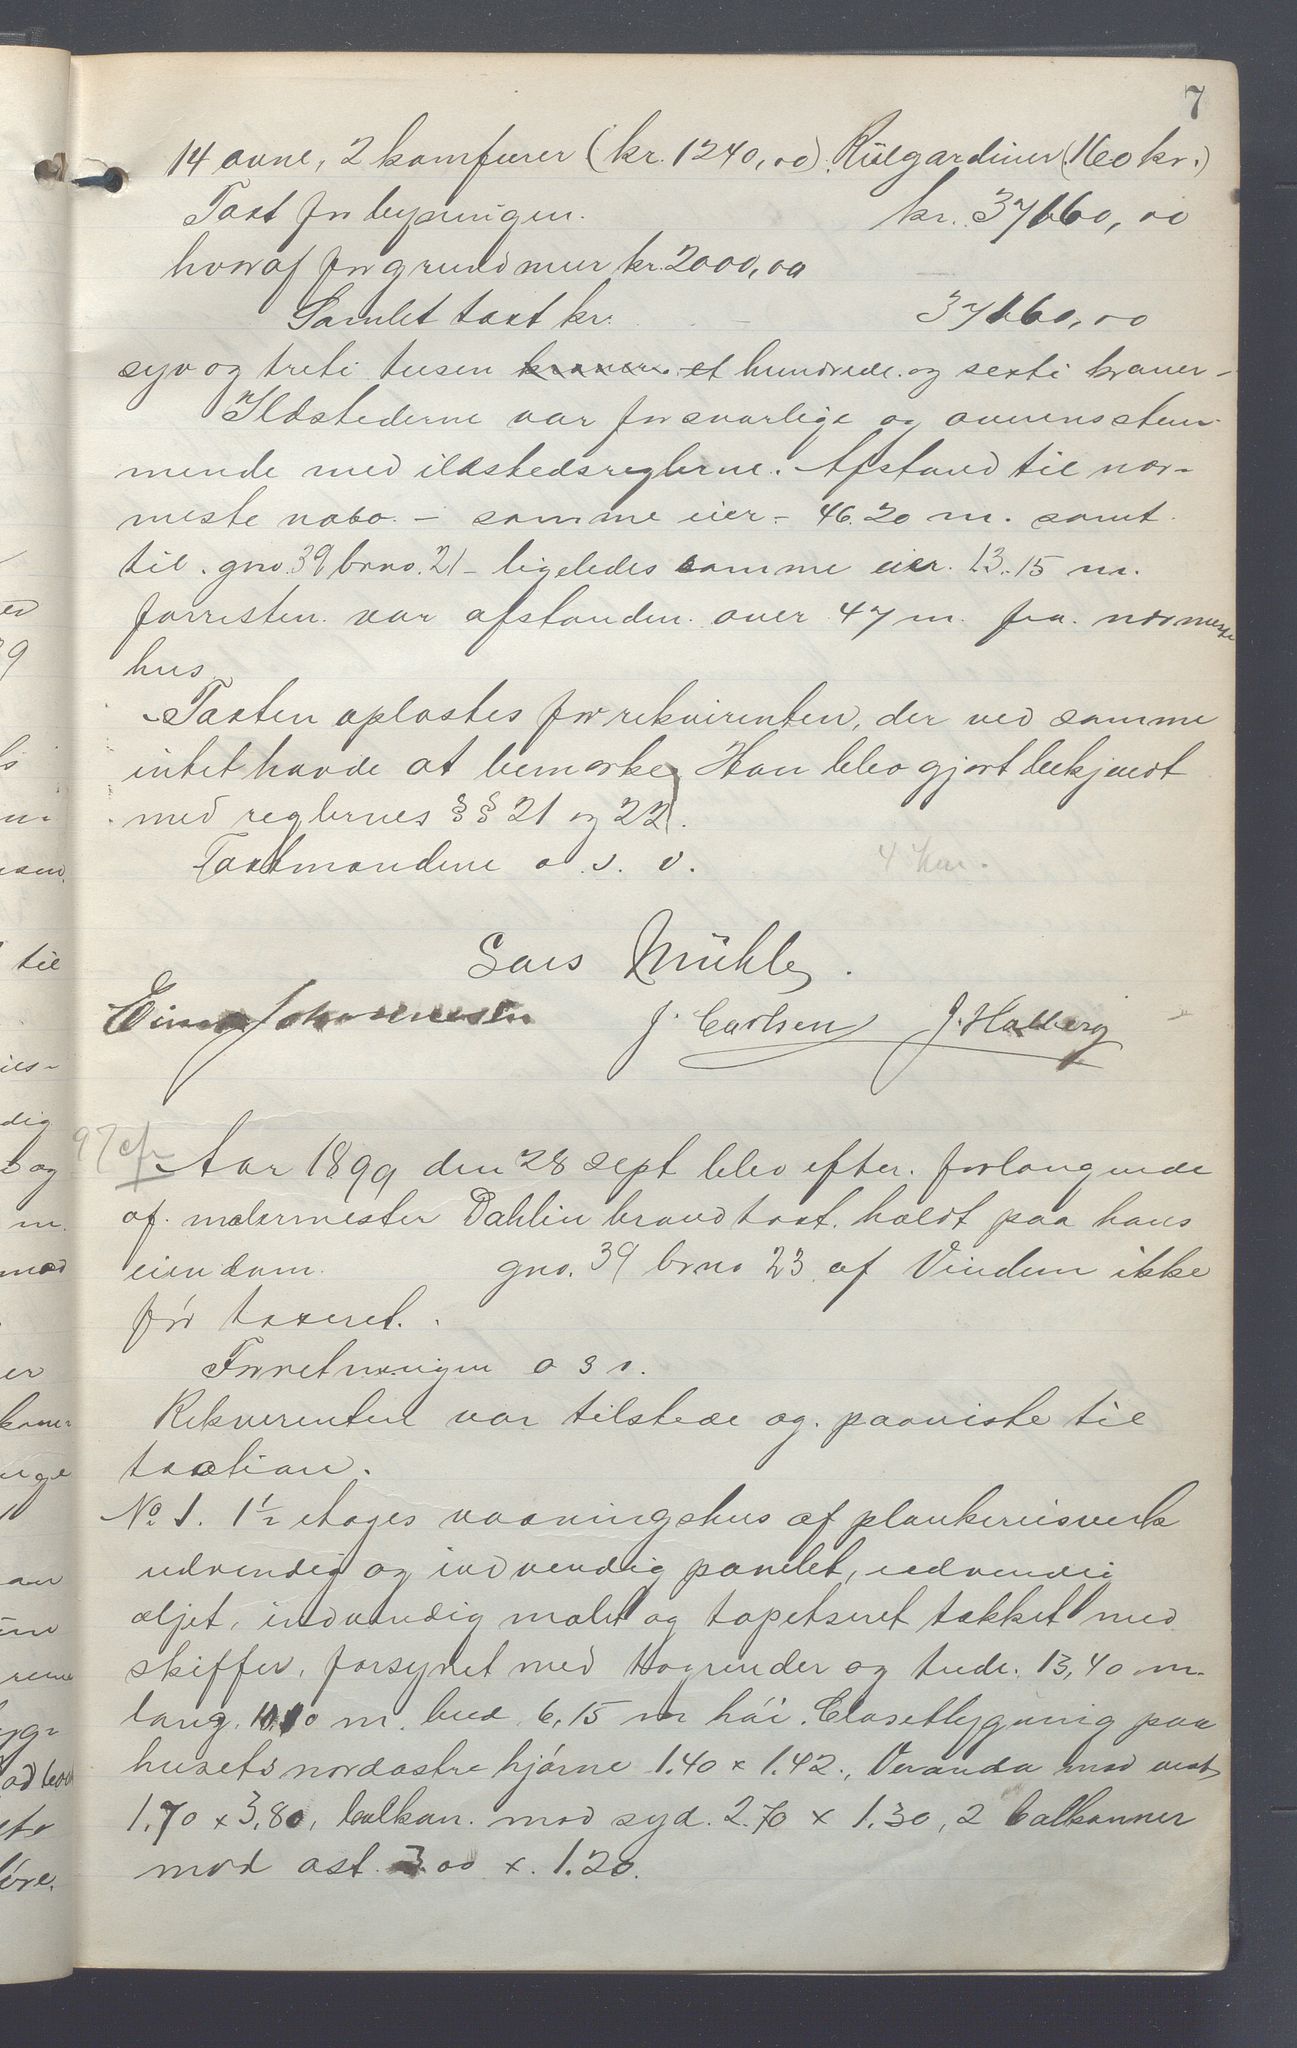 7
14 ovne, 2 komfurer (kr. 1240,00). Rulgardiner (160 kr.)
Taxt for bygningen. kr. 37160,00
hvoraf for grundmur kr. 2000,00
Samlet taxt kr. 37160,00
syv og treti tusen kroner et hundrede og sexti kroner –
Ildstederne var forsvarlige og overensstem-
mende med ildstedsreglerne. Afstand til nær-
meste nabo – samme eier – 46.20 m. samt
til gno. 39 brno. 21 – ligeledes samme eier. 13.15 m.
forresten var afstanden over 47 m. fra nærmeste
hus
Taxten oplæstes for rekvirenten, der ved samme
intet havde at bemærke. Han blev gjort bekjendt
med reglernes §§ 21 og 22.
Taxtmændene o. s. v. 4 km.
Lars Mühle.
Einar Johannesen J. Carlsen J. Hallberg
97 cfr
Aar 1899 den 28 sept blev efter forlangende
af malermester Dahlin brandtaxt holdt paa hans
eiendom gno. 39 brno 23 af Vindern ikke
før taxeret.
Forretningen o s v.
Rekvirenten var tilstede og paaviste til
taxtion.
No. 1. 1½ etages vaaningshus af plankereisverk
udvendig og indvendig panelet, udvendig
oljet, indvendig malet og tapetseret tækket med
skiffer, forsynet med tagrender og nede. 13,40 m.
lang, 10,10 m. bred 6,15 m høi. Closetbygning paa
husets nordøstre hjørne 1.40 x 1.42., Veranda mod vest
1.70 x 3.80, balkon mod syd 2.70 x 1.30, 2 balkonner
mod øst 3.00 x 1.20.